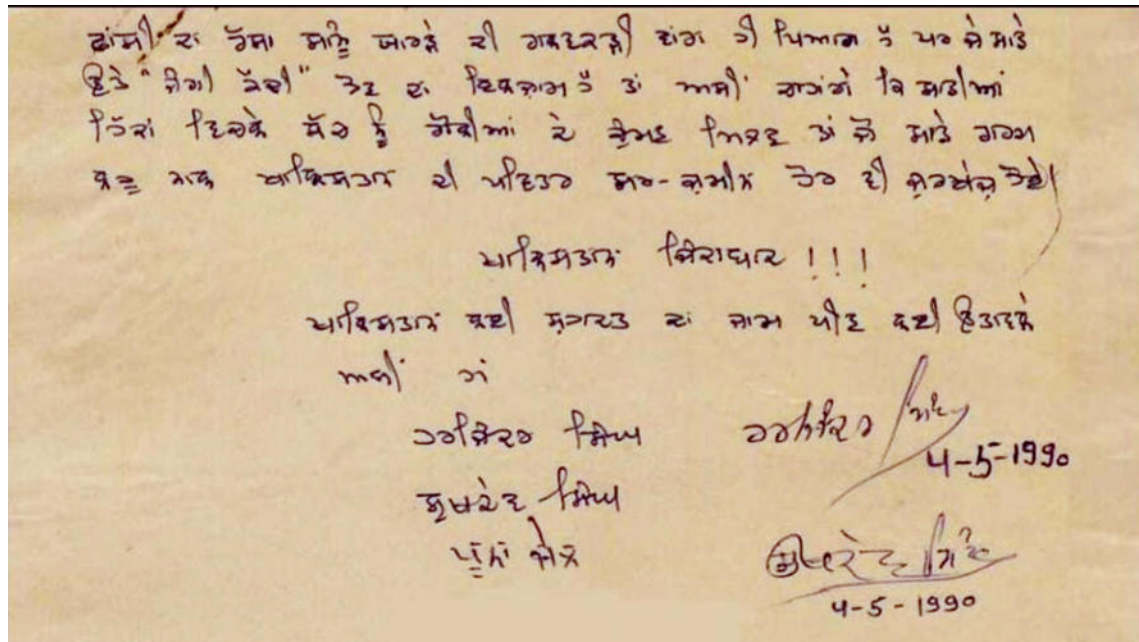 ਫਾਂਸੀ ਦਾ ਰੱਸਾ ਸਾਨੂੰ ਸਾਜਨ ਦੀ ਗਲਵਕੜੀ ਵਾਂਗ ਹੀ ਪਿਆਰਾ ਹੈ ਪਰ ਜੇ ਸਾਡੇ
ਉਤੇ "ਜੰਗੀ ਕੈਦੀ" ਹੋਣ ਦਾ ਇਲਜ਼ਾਮ ਹੈ ਤਾਂ ਅਸੀਂ ਚਾਹਾਂਗੇ ਕਿ ਸਾਡੀਆਂ
ਹਿੱਕਾਂ ਵਿਚਲੇ ਸੱਚ ਨੂੰ ਗੋਲੀਆਂ ਦੇ ਚੁੰਮਣ ਮਿਲਣ ਤਾਂ ਜੋ ਸਾਡੇ ਗਰਮ
ਲਹੂ ਨਾਲ ਖਾਲਿਸਤਾਨ ਦੀ ਪਵਿਤਰ ਸਰ-ਜ਼ਮੀਨ ਹੋਰ ਵੀ ਜ਼ਰਖੇਜ਼ ਹੋਵੇ।
ਖਾਲਿਸਤਾਨ ਜ਼ਿੰਦਾਬਾਦ !!!
ਖਾਲਿਸਤਾਨ ਲਈ ਸ਼ਹਾਦਤ ਦਾ ਜਾਮ ਪੀਣ ਲਈ ਉਤਾਵਲੇ
ਅਸੀਂ ਹਾਂ
ਹਰਜਿੰਦਰ ਸਿੰਘ ਹਰਜਿੰਦਰ ਸਿੰਘ
4-5-1990
ਸੁਖਦੇਵ ਸਿੰਘ
ਪੂੰਨਾ ਜੇਲ ਸੁਖਦੇਵ ਸਿੰਘ
4-5-1990